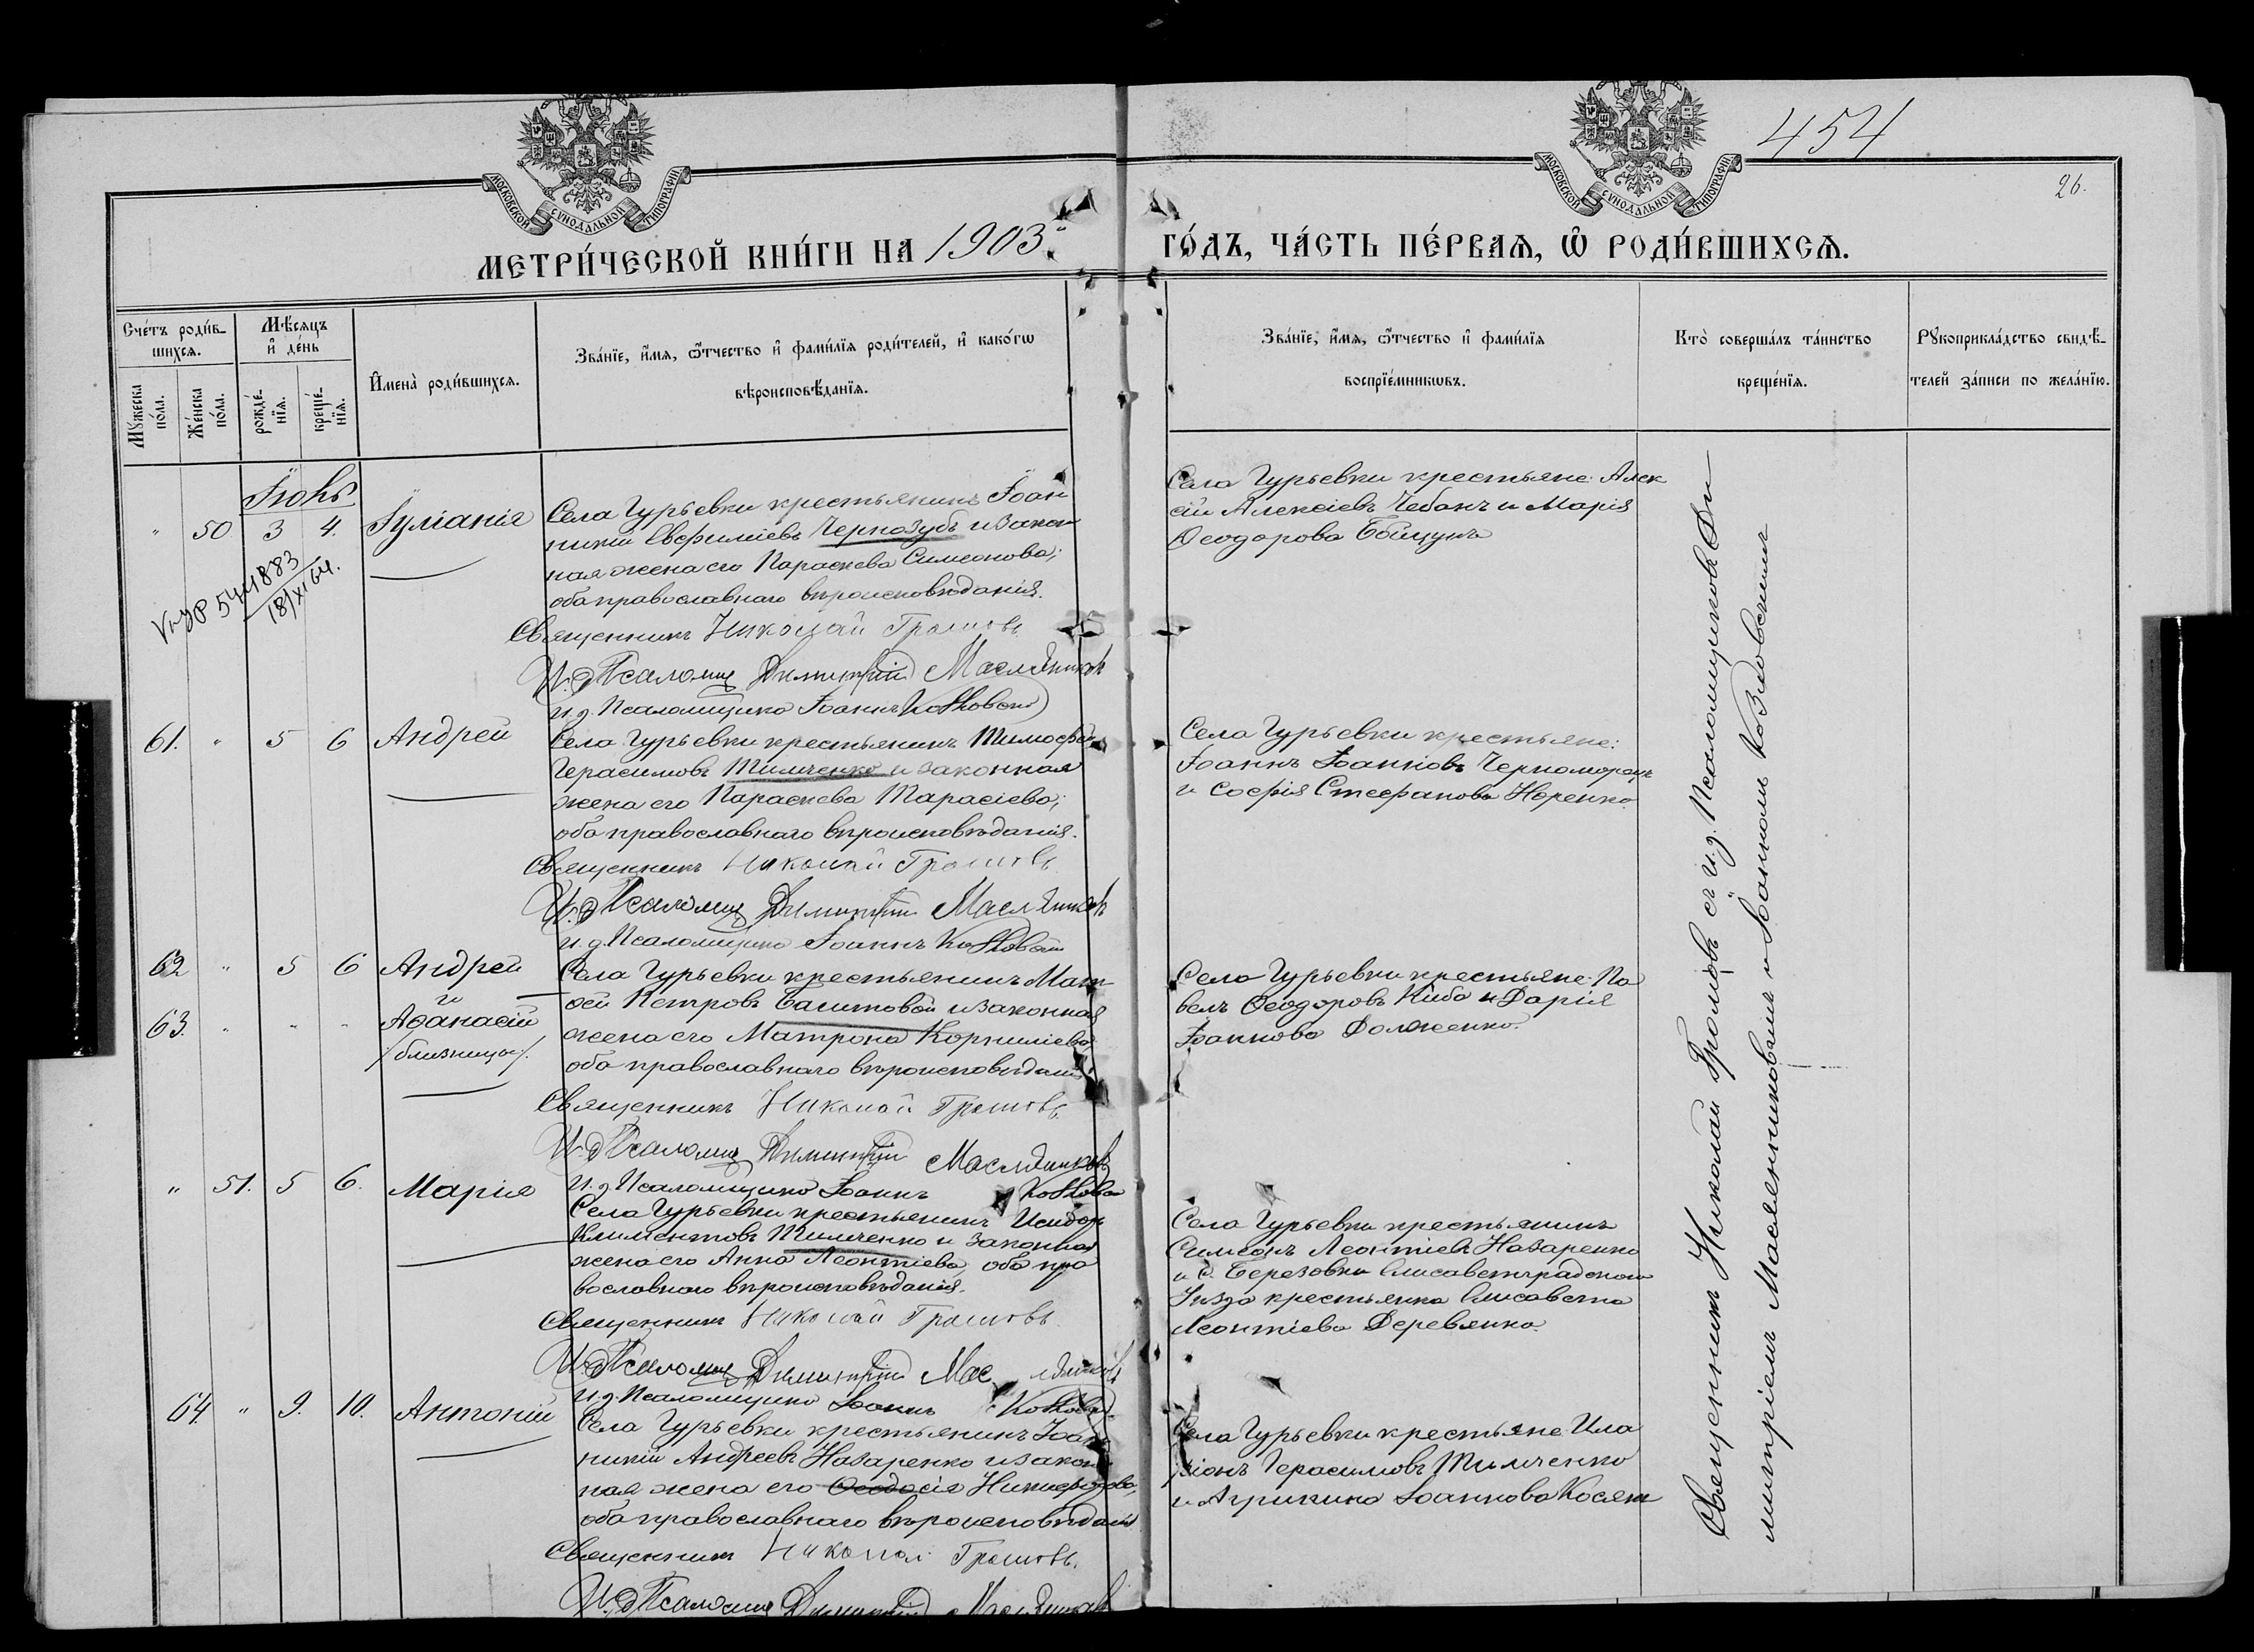 МОСКОВСКОЙ СѴНОДАЛЬНОЙ ТИПОГРАФІИ
МОСКОВСКОЙ СѴНОДАЛЬНОЙ ТИПОГРАФІИ
454
26.
МЕТРИ́ЧЕСКОЙ КНИ́ГИ НА 1903
ГО́ДЪ, ЧА́СТЬ ПЕ́РВАѦ, Ѿ РОДИ́ВШИХСѦ.
Сче́тъ роди́в-
шихсѧ.
Мꙋ́жеска по́ла.
Же́нска по́ла.
Мѣ́сѧцъ
и҆ де́нь
рожде́-
нїѧ.
креще́-
нїѧ.
И҆мена̀ роди́вшихсѧ.
Зва́нїе, и҆́мѧ, ѻ҆́тчество и҆ фами́лїѧ роди́телей, и҆ како́гѡ
вѣроисповѣ́данїѧ.
Зва́нїе, и҆́мѧ, ѻ҆́тчество и҆ фами́лїѧ
воспрїе́мникѡвъ.
Кто̀ соверша́лъ та́инство
креще́нїѧ.
Рꙋкоприкла́дство свидѣ́-
телей за́писи по жела́нїю.
Іюнь
" 50 3 4. Іуліанія
Села Гурьевки крестьянинъ Іоан
никій Евфиміевъ Чернозубъ и закон
ная жена его Параскева Симеонова;
оба православнаго вѣроисповѣданія.
Священникъ Николай Громовъ
И. д. Псаломщ Димитрій Масляников
и. д. Псаломщика Іоаннъ
Села Гурьевки крестьяне: Алек
сій Алексіевъ Чебанъ и Марія
Ѳеодорова
544883
18/XI 64.
61. " 5 6 Андрей
Села Гурьевки крестьянинъ Тимофей
Герасимовъ Тимченко и законная
жена его Параскева Тарасіева;
оба православнаго вѣроисповѣданія.
Священникъ Николай Громовъ
И. д. Псаломщ Димитрій Масляников
и. д. Псаломщика Іоаннъ
Села Гурьевки крестьяне:
Іоаннъ Іоанновъ Черноморец
и Софія Стефанова
62 " 5 6 Андрей
и
63. " " " Аѳанасій
/близнецы/.
Села Гурьевки крестьянинъ Мат
ѳей Петровъ и законная
жена его Матрона Корниліева
оба православнаго вѣроисповѣданія
Священникъ Николай Громовъ
И. д. Псаломщ Димитрій Масляников
И. д. Псаломщика Іоаннъ
Села Гурьевки крестьяне: Па
велъ Ѳеодоровъ Киба и Дарія
Іоаннова Долженко.
" 51. 5 6. Марія
Села Гурьевки крестьянинъ Исидор
Климентовъ Тимченко и законная
жена его Анна Леонтіева, оба пра
вославнаго вѣроисповѣданія.
Священникъ Николай Громовъ
И. д. Псаломщ Димитрій
И. д. Псаломщика Іоаннъ
Села Гурьевки крестьянинъ
Симеонъ Леонтіевъ Назаренко
и с. Березовки Елисаветградскаго
Уѣзда крестьянка Елисавета
Леонтіева Деревянко.
64 " 9. 10. Антоній
Села Гурьевки крестьянинъ Іоан
никій Андреевъ Назаренко и закон
ная жена его Ѳеодосія Никифорова,
оба православнаго вѣроисповѣданія
Священникъ Николай Громовъ.
И. д. Псаломщ Димитрій Масляников
Села Гурьевки крестьяне Ила
ріонъ Герасимовъ Тимченко
и Агрипина Іоаннова Косят
Священникъ Николай Громовъ съ и. д. Псаломщиковъ Ди
митріемъ Масленниковымъ и Іоанномъ Козловскимъ